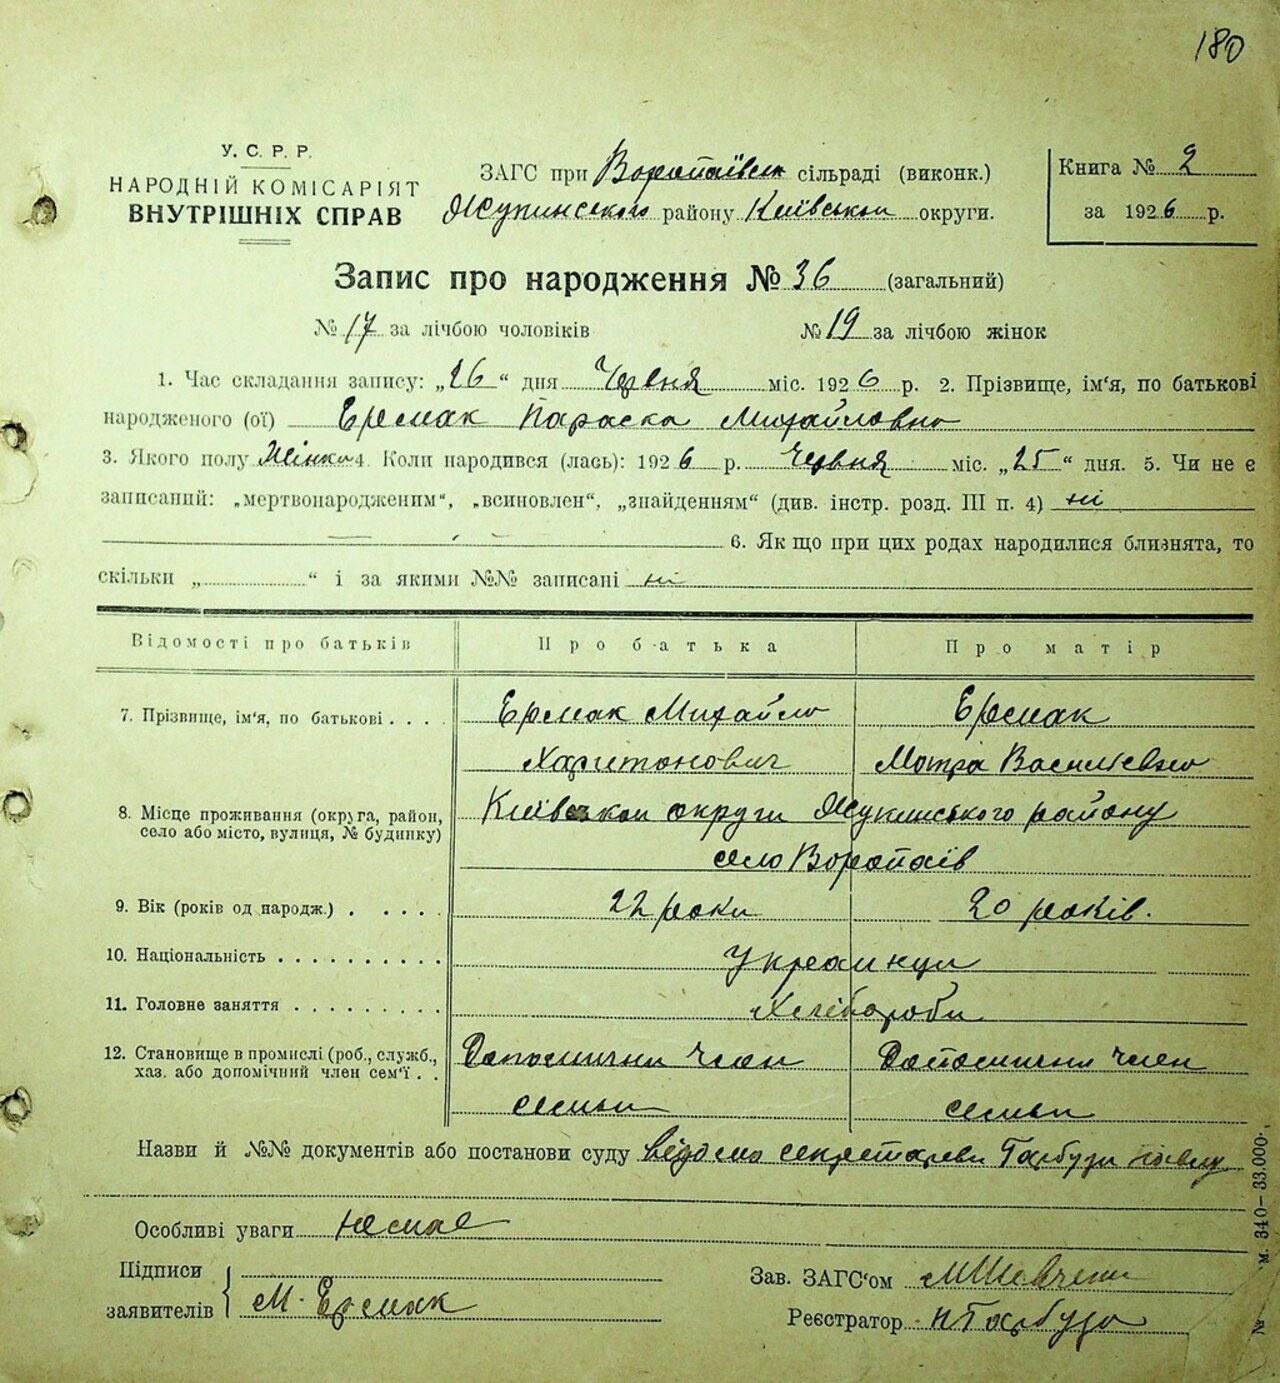 180
У. С. Р. Р.
НАРОДНІЙ КОМІСАРІЯТ
ВНУТРІШНІХ СПРАВ
ЗАГС при Воропаївськ сільраді (виконк.)
Жукинського району Київської округи.
Книга № 2
за 1926 р.
Запис про народження № 36 (загальний)
№ 17 за лічбою чоловіків № 19 за лічбою жінок
1. Час складання запису: „26“ дня Червня міс. 1926 р. 2. Прізвище, ім'я, по батькові
народженого (ої) Ермак Параска Михайловна
3. Якого полу Жінки 4. Коли народився (лась): 1926 р. Червня міс. „25“ дня. 5. Чи не є
записаний: „мертвонародженим“, „всиновлен“, „знайденням“ (див. інстр. розд. III п. 4) ні
6. Як що при цих родах народилися близнята, то
скільки „ “ і за якими №№ записані ні
Відомості про батьків Про батька Про матір
7. Прізвище, ім'я, по батькові . . . . Ермак Михайло Ермак
Харитонович Мотря Василівно
8. Місце проживання (округа, район, Київської округи Жукинського району
село або місто, вулиця, № будинку) село Воропаїв
9. Вік (років од народж.) . . . . . 22 роки 20 років.
10. Національність . . . . . . . . . . Украинци
11. Головне заняття . . . . . . . . . Хлібороби
12. Становище в промислі (роб., служб., Допомични член Допомични член
хаз. або допомічний член сем'ї . . семьи семьи
Назви й №№ документів або постанови суду відомо секретареви Гарбузи
Особливі уваги Немае
Підписи
заявителів М. Ермак
Зав. ЗАГС'ом МШевченко
Реєстратор ПГарбуза
№ м. 340—33.000.